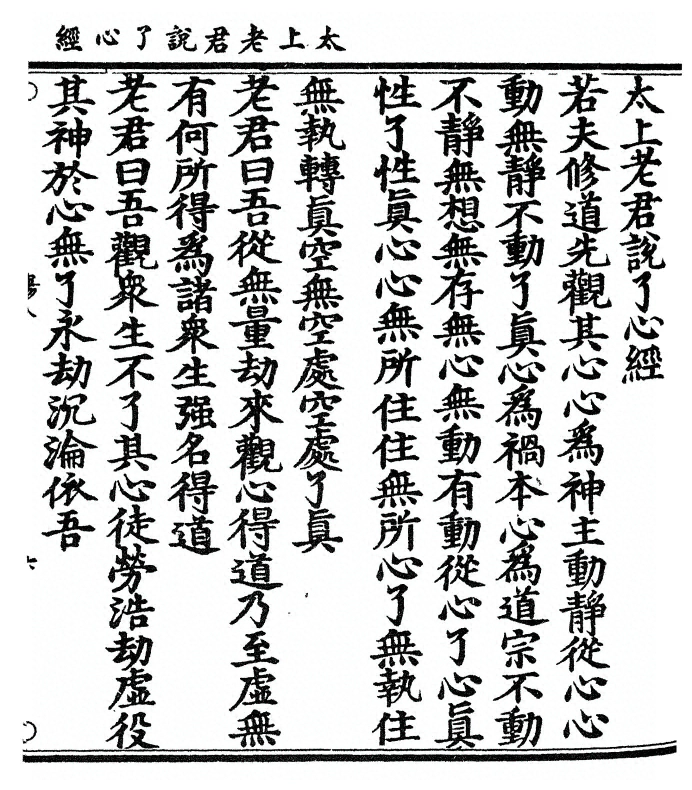 太上老君說了心經
太上老君說了心經
若夫修道先觀其心心為神主動靜從心心
動無靜不動了真心為禍本心為道宗不動
不靜無想無存無心無動有動從心了心真
性了性真心心無所住住無所心了無執住
無執轉真空無空處空處了真
老君曰吾從無量劫來觀心得道乃至虛無
有何所得為諸眾生强名得道
老君曰吾觀眾生不了其心徒勞浩劫虛役
其神於心無了永劫沉淪依吾